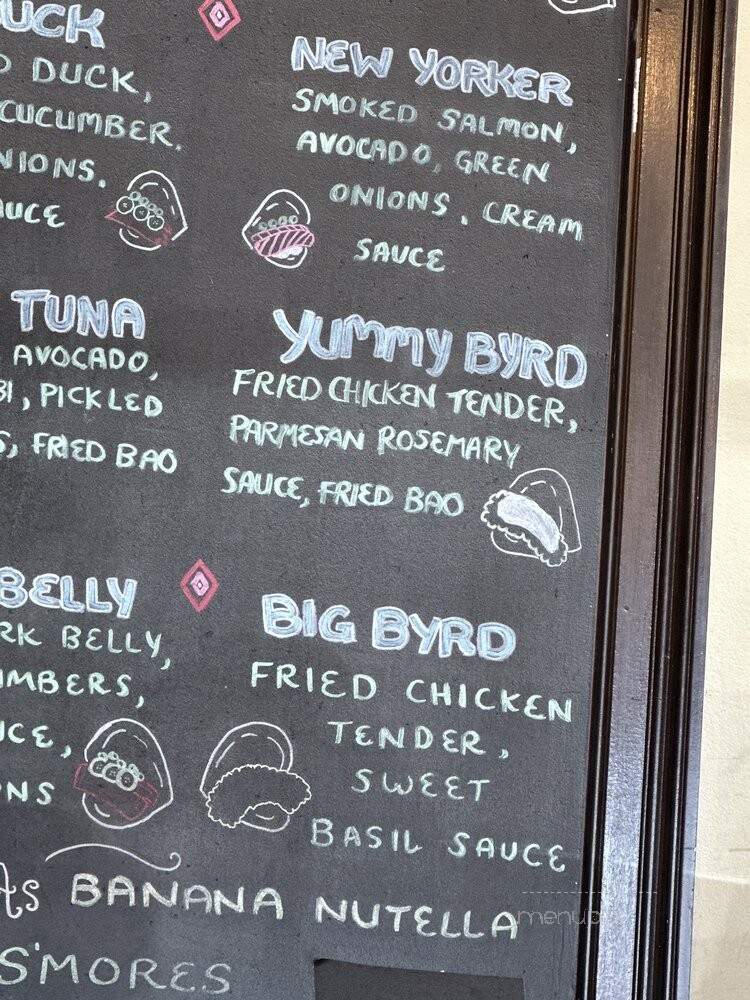 UCK
D DUCK,
CUCUMBER.
NIONS.
AUCE
NEW YORKER
SMOKED SALMON,
AVOCADO, GREEN
ONIONS. CREAM
SAUCE
TUNA
AVOCADO,
BI, PICKLED
S, FRIED BAO
YUMMY BYRD
FRIED CHICKEN TENDER,
PARMESAN ROSEMARY
SAUCE, FRIED BAO
BELLY
RK BELLY,
UMBERS,
UCE,
ONS
BIG BYRD
FRIED CHICKEN
TENDER,
SWEET
BASIL SAUCE
As BANANA NUTELLA
S'MORES
menu